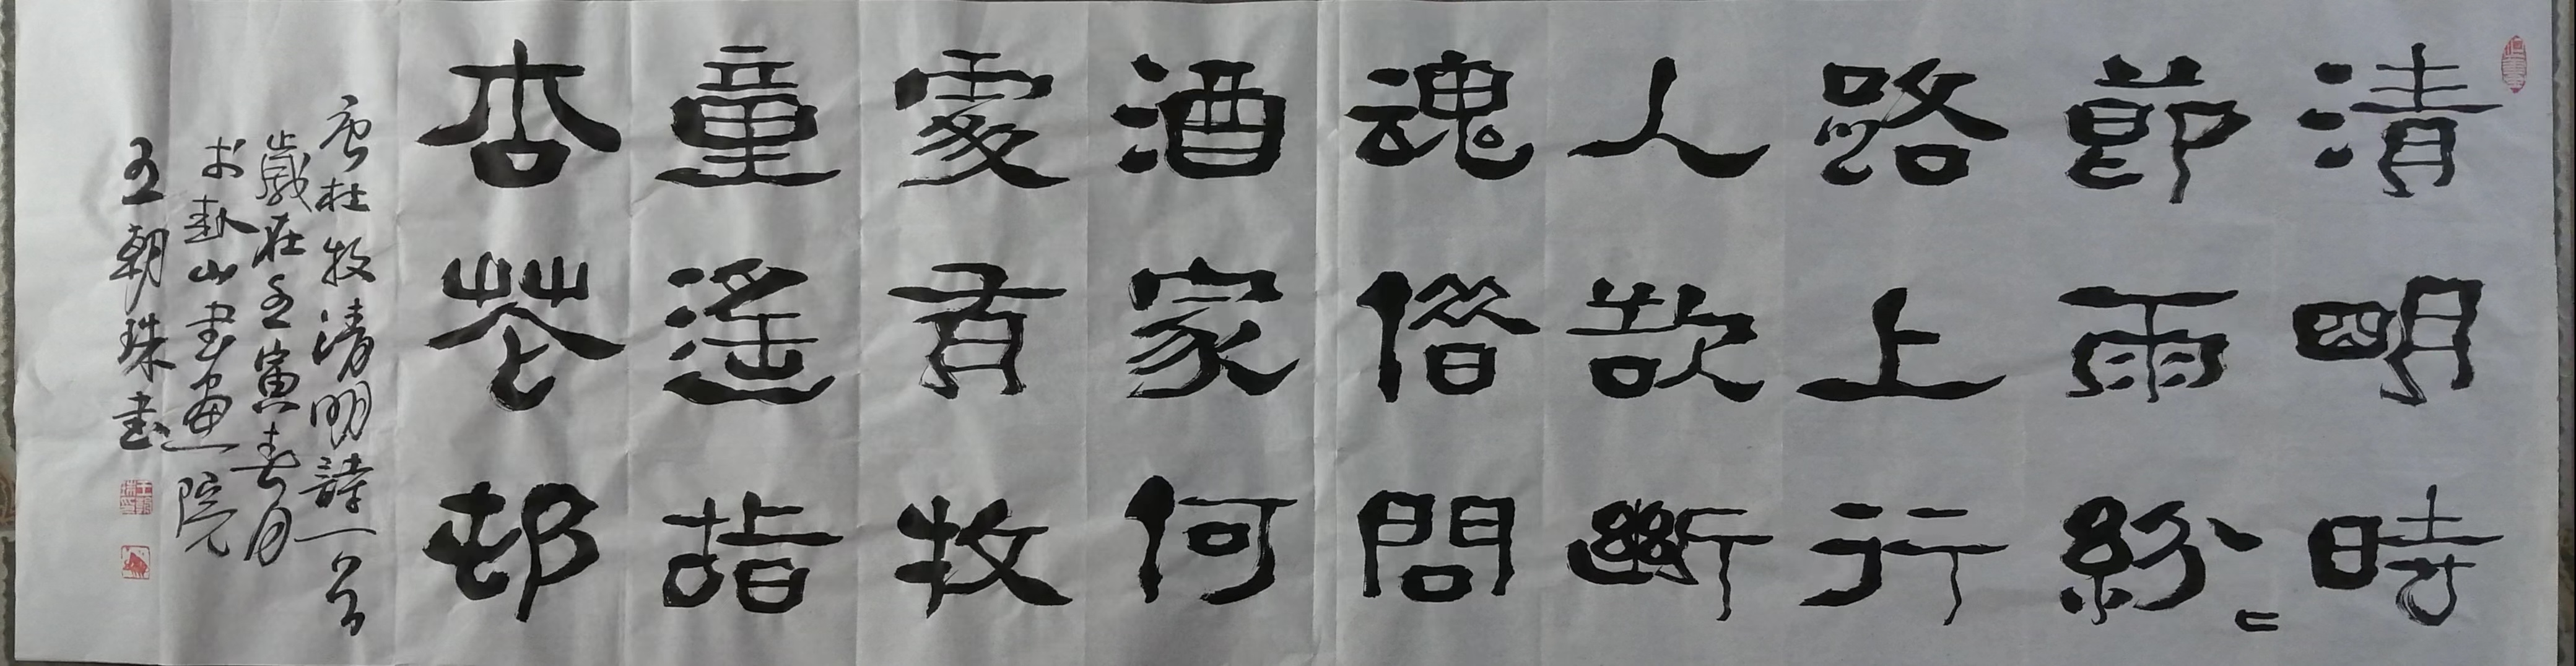 清明時
節雨紛〻
路上行
人欲斷
魂借問
酒家何
處有牧
童遥指
杏花邨
唐杜牧清明詩一首
歲在壬寅春月
於卦山書畫院
王朝珠書